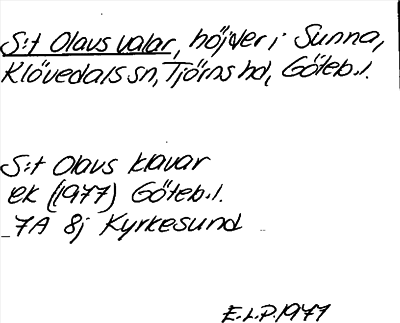 S:t Olavs valar, höjder i Sunna,
Klövedals sn, Tjörns hd, Göteb. l.
S:t Olavs klavar
ek (1977) Göteb. l.
7A 8j Kyrkesund
E.L.P. 1977